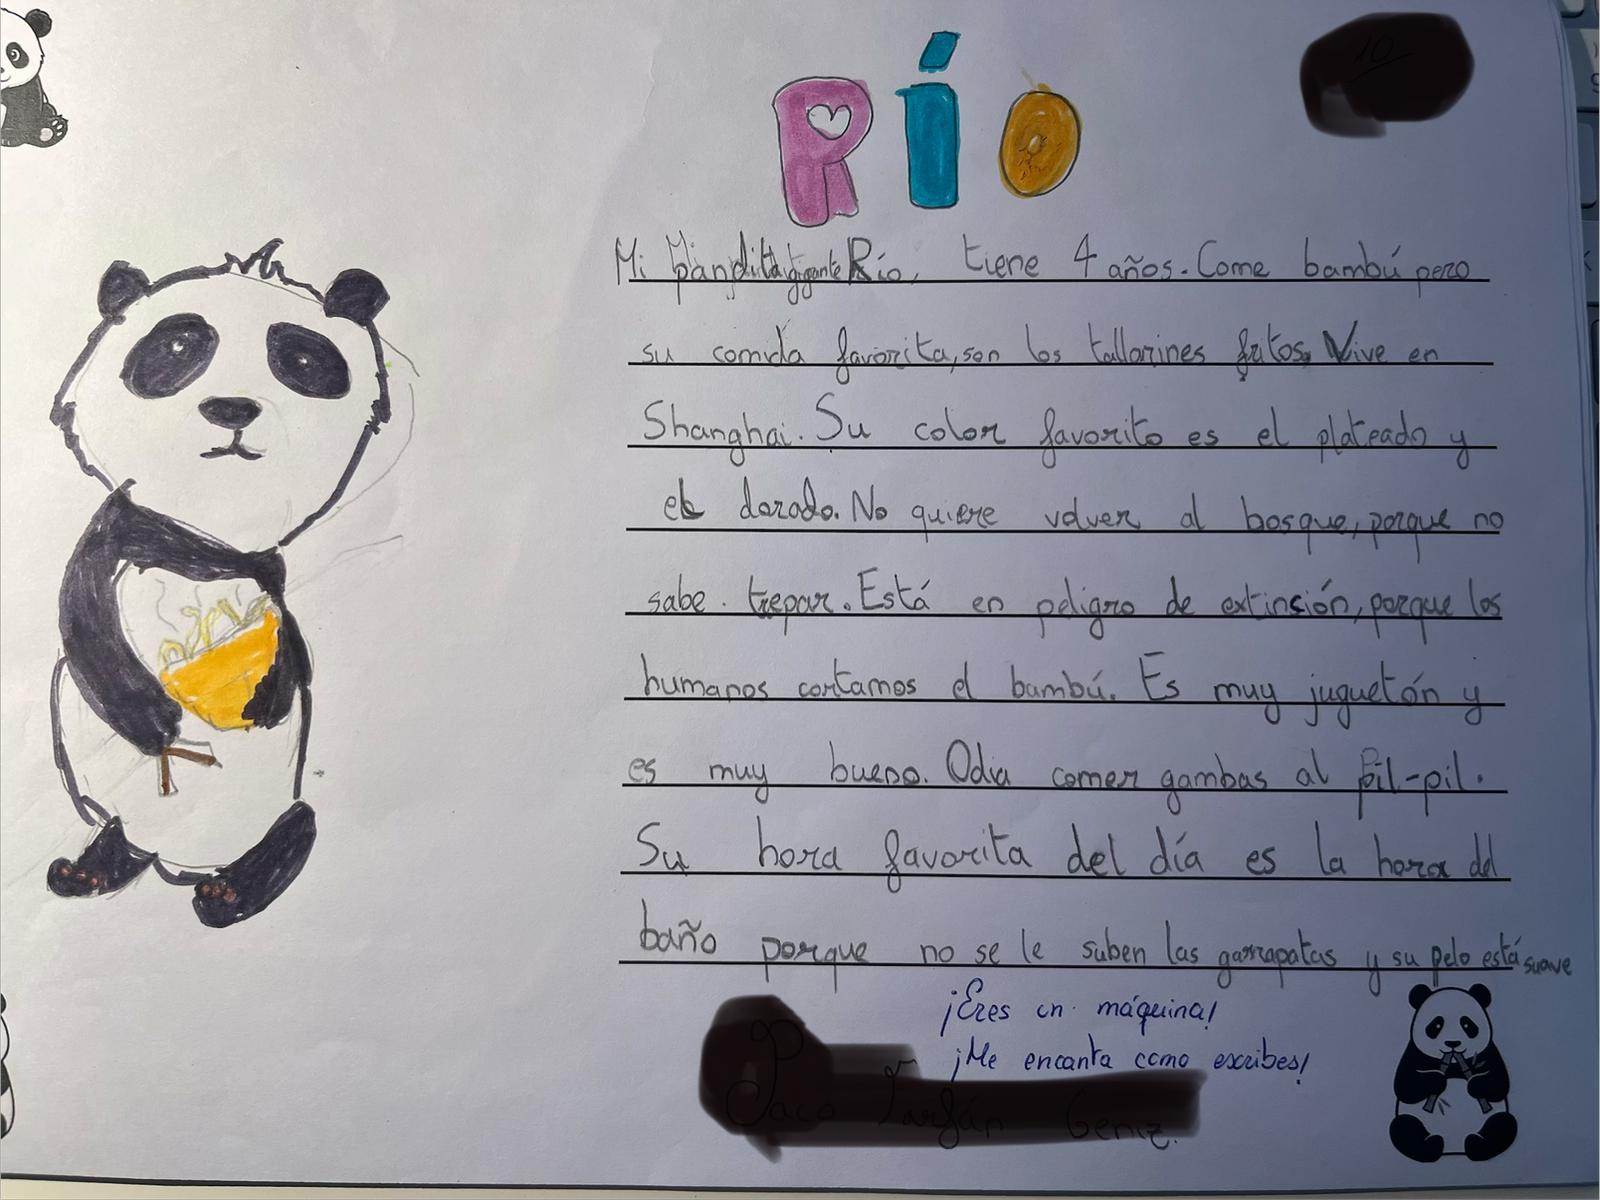 RÍO
Mi pandita gigante Río, tiene 4 años. Come bambú pero
su comida favorita, son los tallarines fritos. Vive en
Shanghai. Su color favorito es el plateado y
el dorado. No quiere volver al bosque, porque no
sabe trepar. Está en peligro de extinsión, porque los
humanos cortamos el bambú. Es muy juguetón y
es muy bueno. Odia comer gambas al pil-pil.
Su hora favorita del día es la hora del
baño porque no se le suben las garrapatas y su pelo está suave
¡Eres un máquina!
¡Me encanta como escribes!